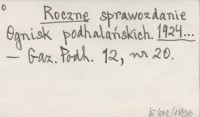 Roczne sprawozdanie
Ognisk podhalańskich. 1924...
– Gaz. Podh. 12, nr 20.